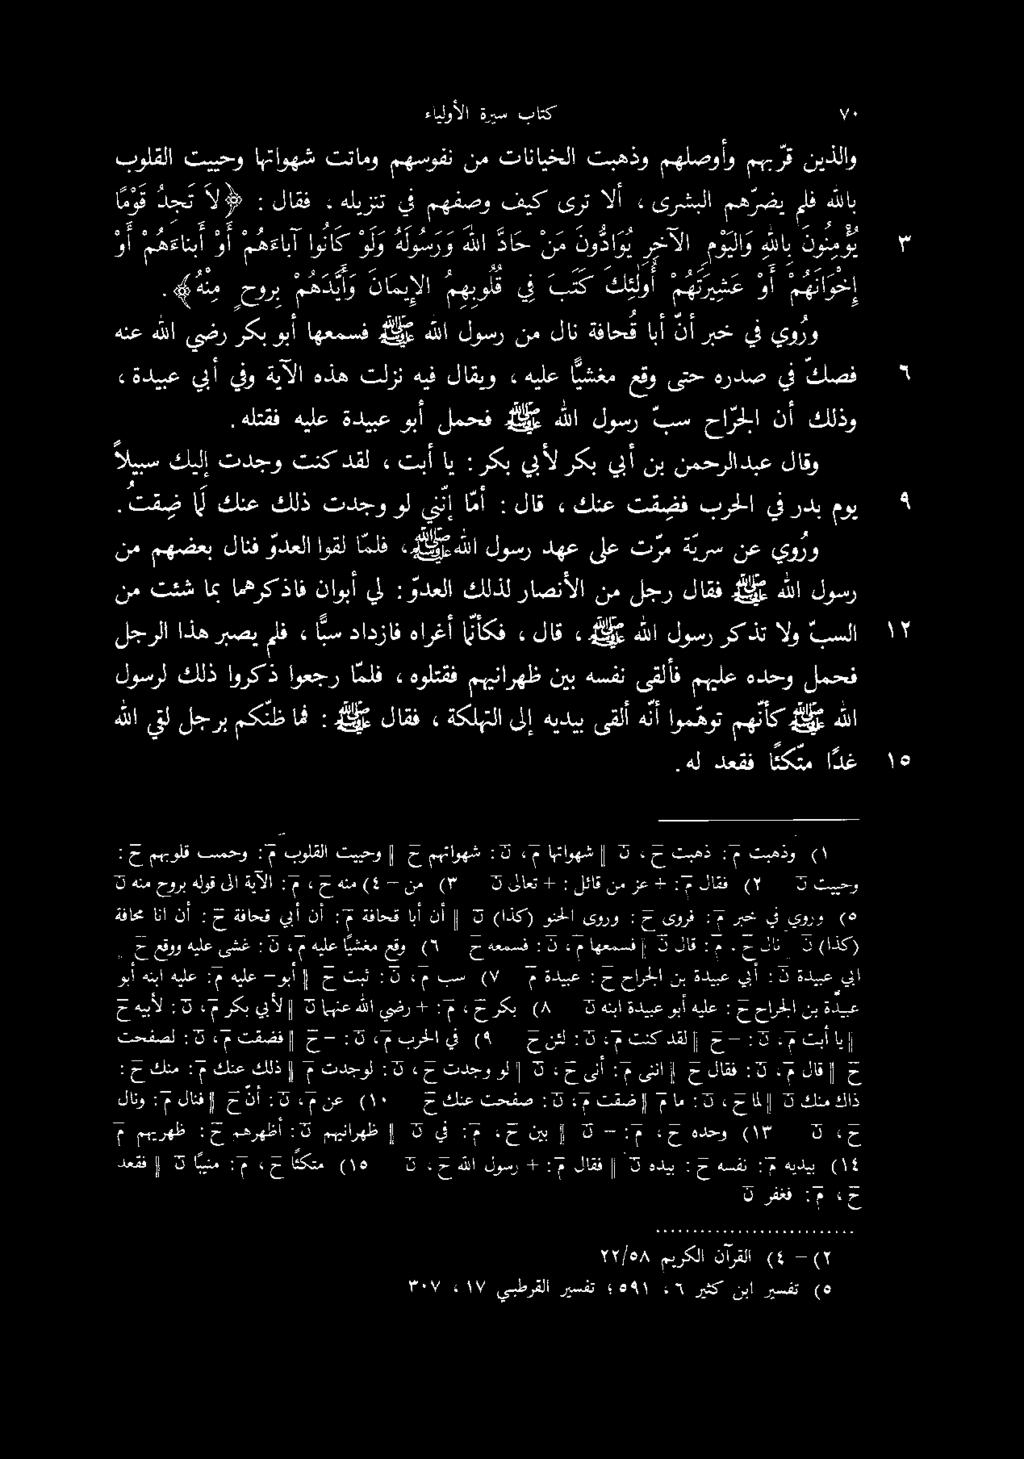 ٧٠ كتاب سيرة الأولياء
والذين قرّبهم وأوصلهم وذهبت الخيانات من نفوسهم وماتت شهواتها وحييت القلوب
بالله فلم يضرّهم البشرى ، ألا ترى كيف وصفهم في تنزيله ، فقال : ﴿لاَ تَجِدُ قَوْمًا
٣ يُؤْمِنُونَ بِاللهِ وَاليَوْمِ الآخِرِ يُوَادُّونَ مَنْ حَادَّ اللهَ وَرَسُولَهُ وَلَوْ كَانُوا آبَاءَهُمْ أَوْ أَبنَاءَهُمْ أَوْ
إِخْوَانَهُمْ أَوْ عَشِيرَتَهُمْ أُولَئِكَ كَتَبَ فِي قُلُوبِهِمُ الإِيمَانَ وَأَيَّدَهُمْ بِرُوحٍ مِنْهُ﴾ .
ورُوي في خبر أنّ أبا قُحافة نال من رسول الله ﷺ فسمعها أبو بكر رضي الله عنه
٦ فصكّ في صدره حتى وقع مغشيًّا عليه ، ويقال فيه نزلت هذه الآية وفي أبي عبيدة ،
وذلك أن الجرّاح سبّ رسول الله ﷺ فحمل أبو عبيدة عليه فقتله .
وقال عبدالرحمن بن أبي بكر لأبي بكر : يا أبت ، لقد كنت وجدت إليك سبيلاً
٩ يوم بدر في الحرب فضِقت عنك ، قال : أمّا إنّني لو وجدت ذلك عنك لَمَا ضِقتُ .
ورُوي عن سريّة مرّت على عهد رسول الله ﷺ ، فلمّا لقوا العدوّ فنال بعضهم من
رسول الله ﷺ فقال رجل من الأنصار لذلك العدوّ : لي أبوان فاذكرهما بما شئت من
١٢ السبّ ولا تذكر رسول الله ﷺ ، قال ، فكأنّما أغراه فازداد سبًّا ، فلم يصبر هذا الرجل
فحمل وحده عليهم فألقى نفسه بين ظهرانيهم فقتلوه ، فلمّا رجعوا ذكروا ذلك لرسول
الله ﷺ كأنّهم توهّموا أنّه ألقى بيديه إلى التهلكة ، فقال ﷺ : فما ظنّكم برجل لقي الله
١٥ غدًا متّكئًا فقعد له .
١) وذهبت م : ذهبت ح ، ن || شهواتها م ، ن : شهواتهم ح || وحييت القلوب م : وحمست قلوبهم ح :
وحييت ن ٢) فقال م : + عز من قائل : + تعالى ن ٣) من – ٤) منه ح ، م : الآية الى قوله بروح منه ن
٥) وروي في خبر م : فروى ح : وروى الحنو (كذا) ن || أن أبا قحافة م : أن أبي قحافة ح : أن انا محافة
(كذا) ن نال ح . م : قال ن || فسمعها م ، ن : فسمعه ح ٦) وقع مغشيًا عليه م ، ن : غشى عليه ووقع ح
ابي عبيدة ن : أبي عبيدة بن الجراح ح : عبيدة م ٧) سب م ، ن : ثبت ح || أبو – عليه م : عليه ابنه أبو
عبيدة بن الجراح ح : عليه أبو عبيدة ابنه ن ٨) بكر ح ، م : + رضي الله عنهما ن || لأبي بكر م ، ن : لأبيه ح
|| يا أبت م ، ن : – ح || لقد كنت م ، ن : لئن ح ٩) في الحرب م ، ن : – ح || فضقت م ، ن : لصفحت
ح || قال م ، ن : فقال ح || انني م : أنى ح ، ن || لو وجدت ح ، ن : لوجدت م || ذلك عنك م : منك ح :
ذاك منك ن || لما ح ، ن : ما م || ضقت م ، ن : صفحت عنك ح ١٠) عن م ، ن : أنّ ح || فنال م : ونال
ح ، ن ١٣) وحده ح ، م : – ن || بين ح ، م : في ن || ظهرانيهم ن : أظهرهم ح : ظهريهم م
١٤) بيديه م : نفسه ح : بيده ن || فقال م : + رسول الله ح ، ن ١٥) متكئًا ح ، م : منيبًا ن || فقعد
ح ، م : فغفر ن
٢) – ٤) القرآن الكريم ٢٢/٥٨
٥) تفسير ابن كثير ٦ ، ٥٩١ ؛ تفسير القرطبي ١٧ ، ٣٠٧